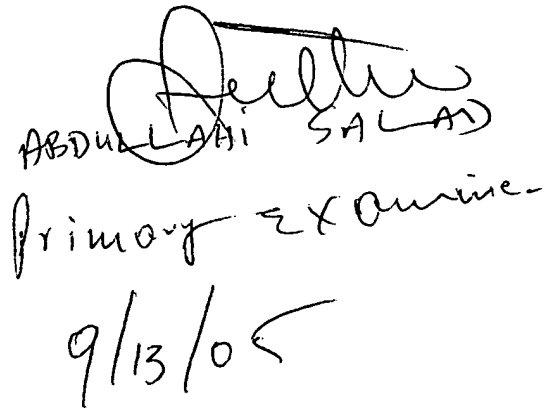 ABDULLAHI SALAD
Primary Examiner
9/13/05